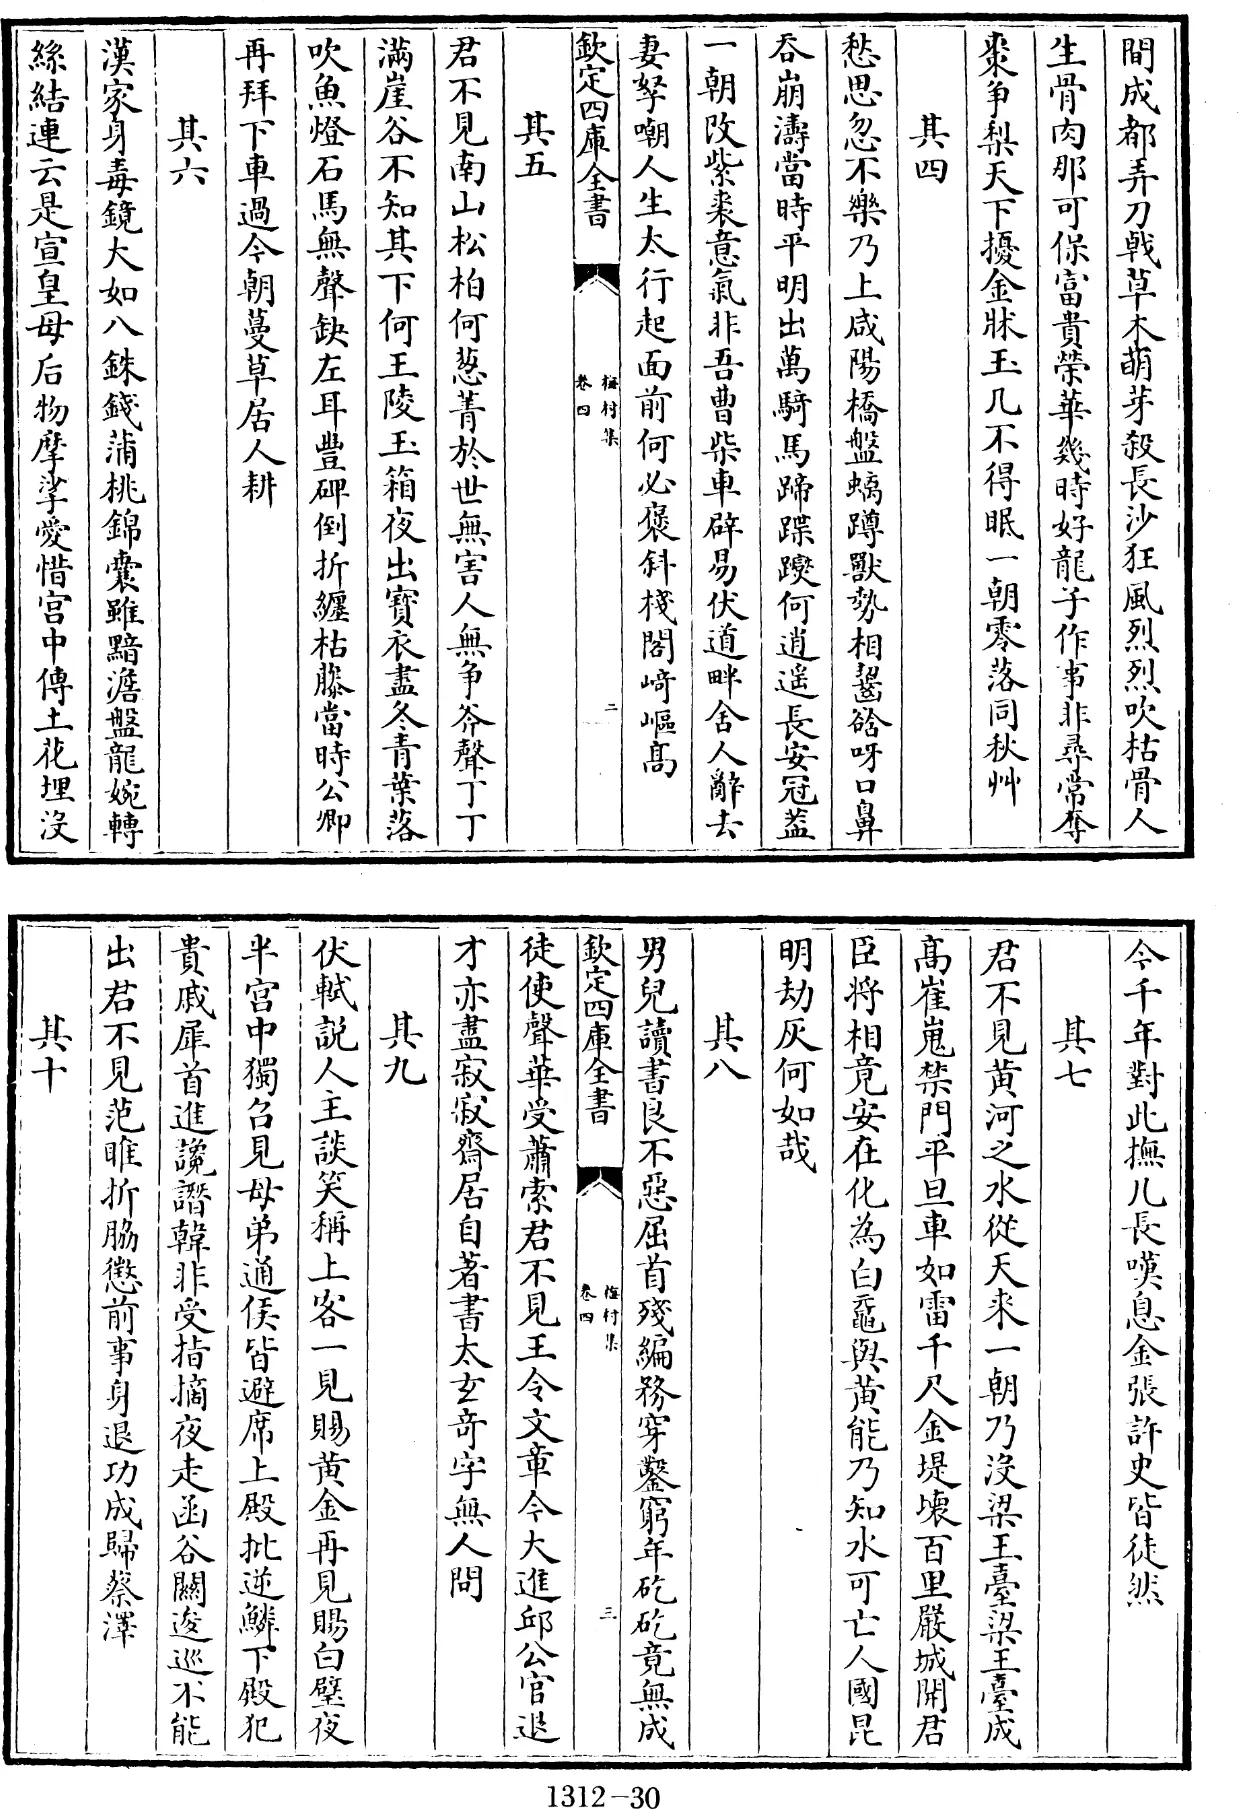 間成都弄刀戟草木萌芽殺長沙狂風烈烈吹枯骨人
生骨肉那可保富貴榮華幾時好龍子作事非尋常奪
棗争梨天下擾金牀玉几不得眠一朝零落同秋艸
其四
愁思忽不樂乃上咸陽橋盤螭蹲獸勢相齧谽呀口鼻
吞崩濤當時平明出萬騎馬蹄蹀躞何逍遥長安冠葢
一朝改紫裘意氣非吾曹柴車辟易伏道畔舍人辭去
妻孥嘲人生太行起面前何必褒斜棧閣﨑嶇髙
欽定四庫全書
梅村集
卷四
二
其五
君不見南山松柏何蔥菁於世無害人無争斧聲丁丁
滿崖谷不知其下何王陵玉箱夜出寶衣盡冬青葉落
吹魚燈石馬無聲缺左耳豐碑倒折纏枯藤當時公卿
再拜下車過今朝蔓草居人耕
其六
漢家身毒鏡大如八銖錢蒲桃錦囊雖黯澹盤龍婉轉
絲結連云是宣皇母后物摩挲愛惜宫中傳土花埋没
今千年對此撫几長嘆息金張許史皆徒然
其七
君不見黄河之水從天來一朝乃没梁王臺梁王臺成
髙崔嵬禁門平旦車如雷千尺金堤壊百里嚴城開君
臣将相竟安在化為白黿與黄能乃知水可亡人國昆
明劫灰何如哉
其八
男兒讀書良不惡屈首殘編務穿鑿窮年矻矻竟無成
欽定四庫全書
梅村集
卷四
三
徒使聲華受蕭索君不見王令文章今大進邱公官退
才亦盡寂寂齋居自著書太玄奇字無人問
其九
伏軾説人主談笑稱上客一見賜黄金再見賜白璧夜
半宫中獨召見母弟通侯皆避席上殿批逆鱗下殿犯
貴戚犀首進讒譖韓非受指摘夜走函谷關逡巡不能
出君不見范睢折脇懲前事身退功成歸蔡澤
其十
1312-30